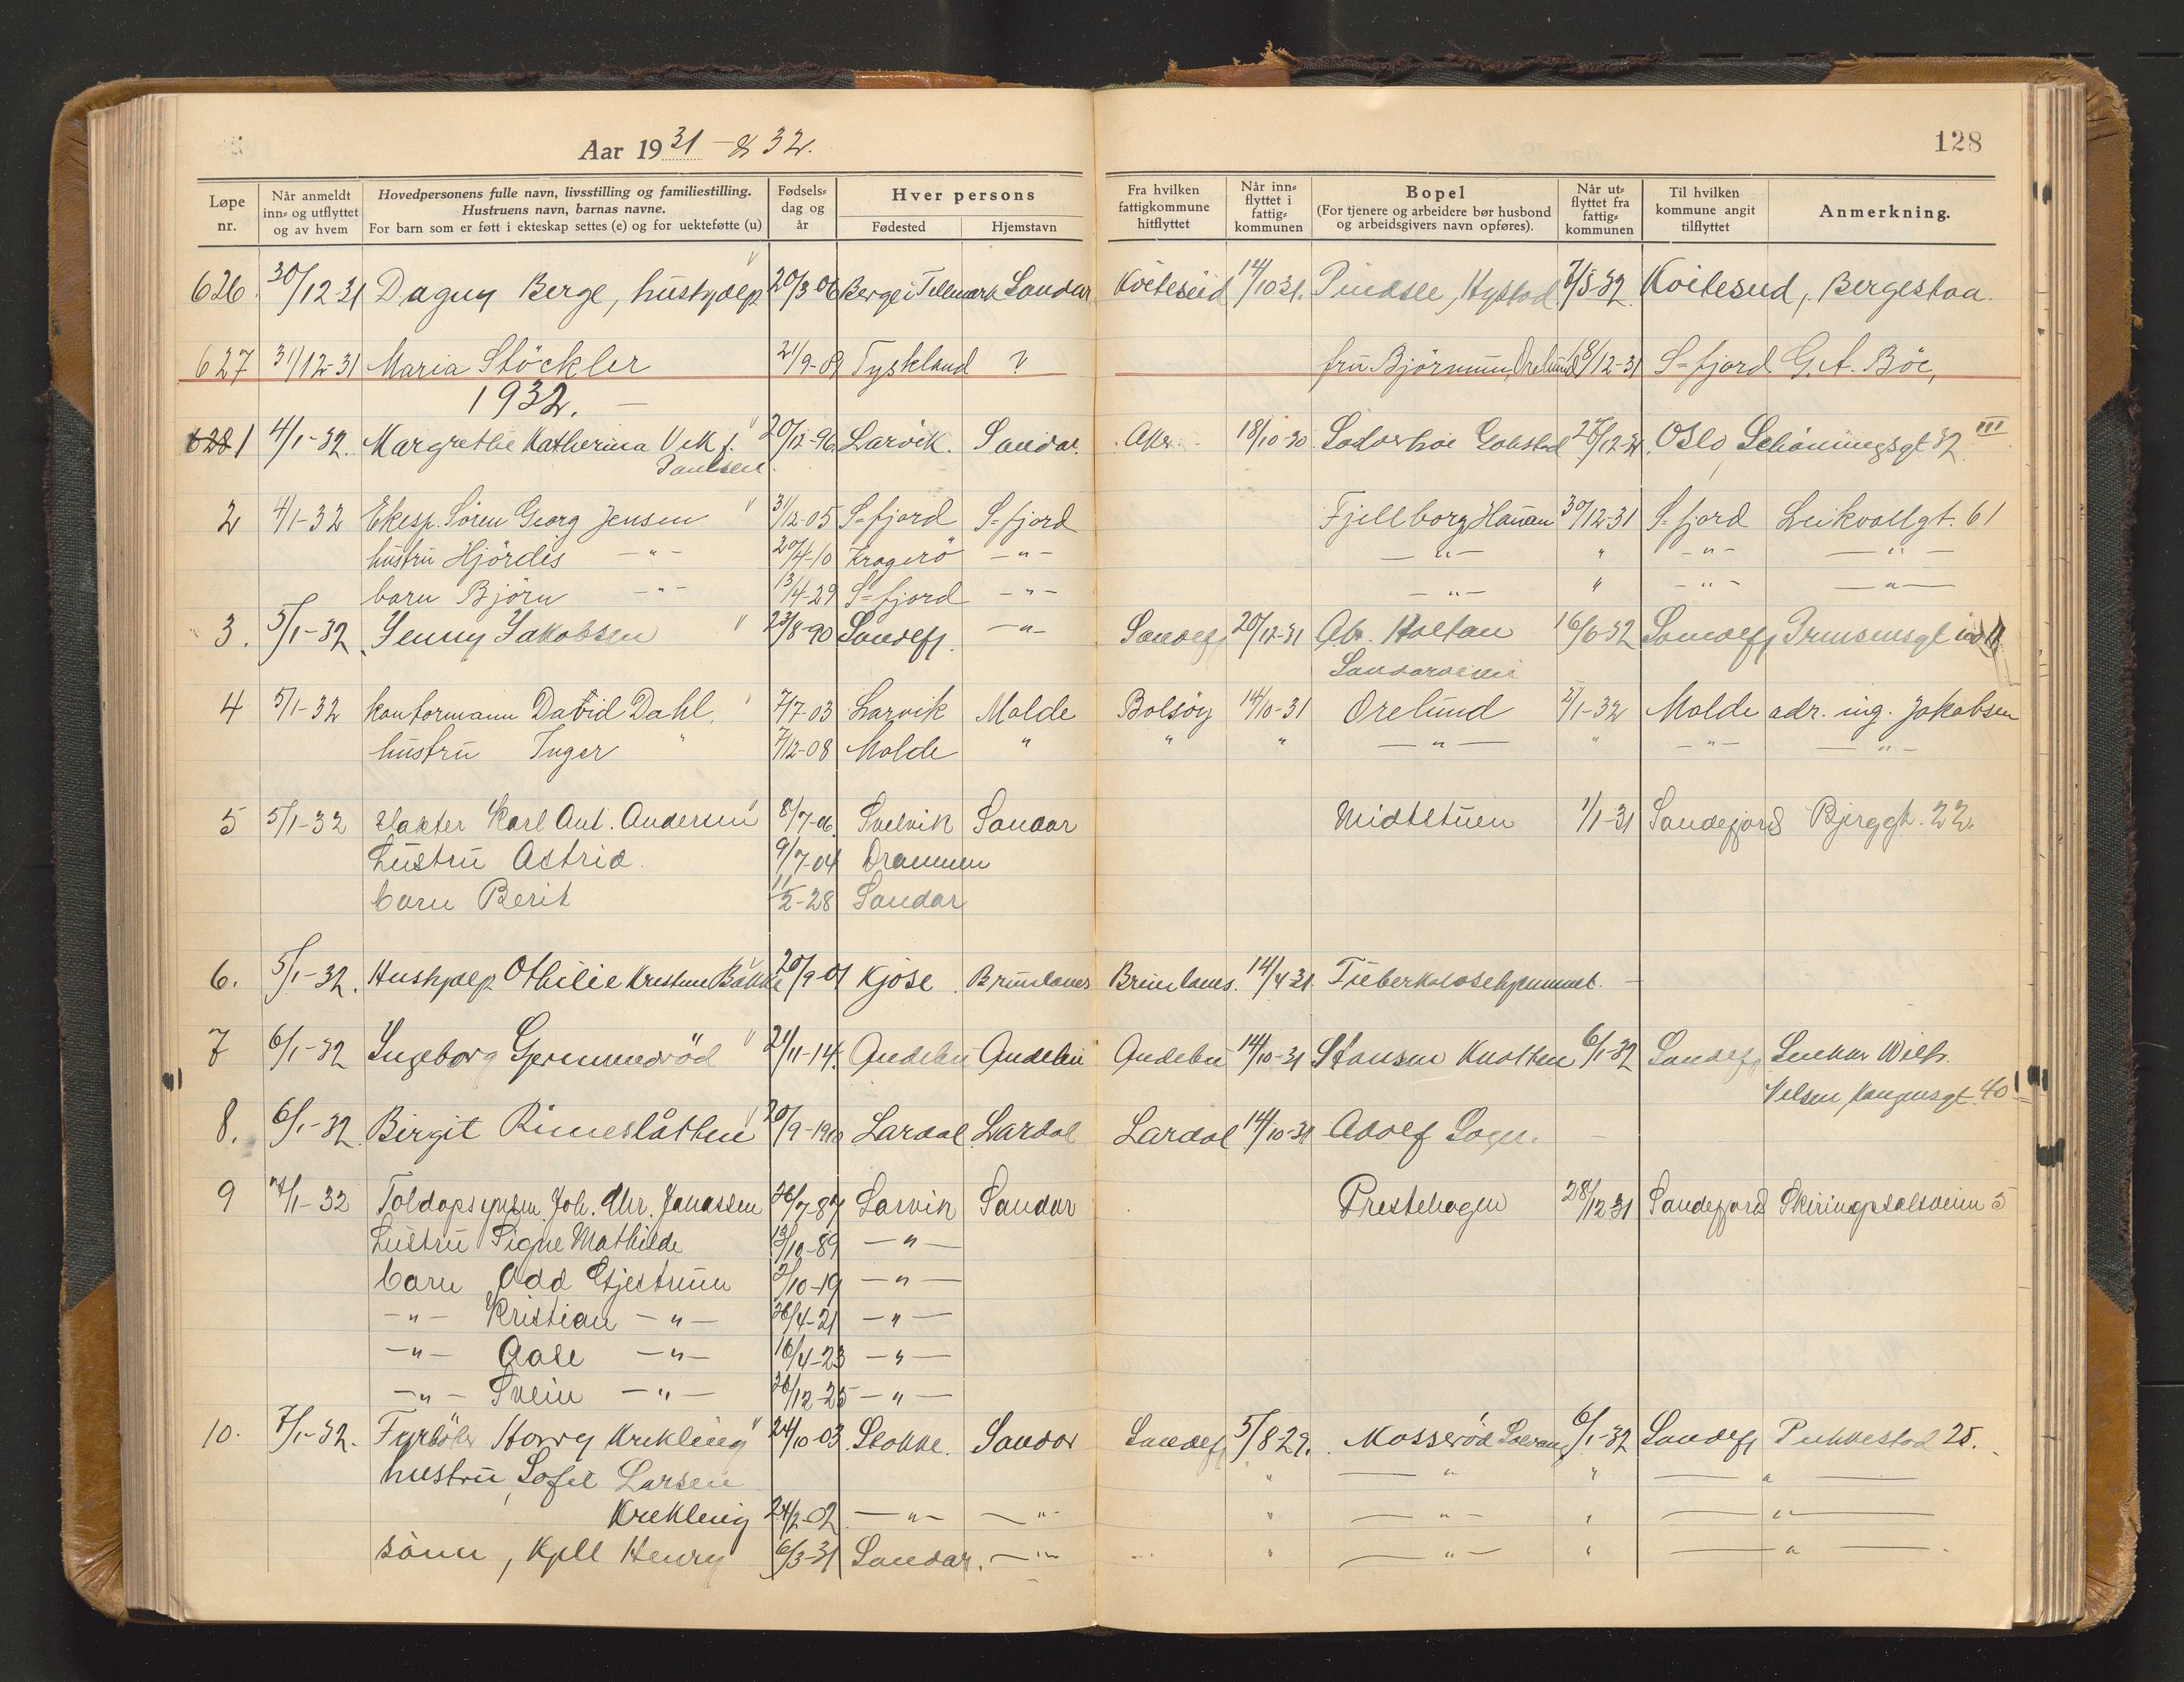 Aar 1931 - & 32.
128
Løpe nr.
Når anmeldt inn= og utflyttet og av hvem
Hovedpersonens fulle navn, livsstilling og familiestilling. Hustruens navn, barnas navne. For barn som er føtt i ekteskap settes (e) og for uekteføtte (u)
Fødsels= dag og år
Hver persons
Fødested
Hjemstavn
Fra hvilken fattigkommune hitflyttet
Når inn= flyttet i fattig= kommunen
Bopel (For tjenere og arbeidere bør husbond og arbeidsgivers navn opføres).
Når ut= flyttet fra fattig= kommunen
Til hvilken kommune angit tilflyttet
Anmerkning.
626. 30/12-31 Dagny Berge, hushjælp 20/3-06 Berge i Telemark Sandar Kviteseid 14/10 31. Pindsle, Hystad 7/5-32 Kviteseid, Bergestaa
627 31/12-31 Maria Stöckler 21/9-09 Tyskland ? fru Bjørnum, Orelund /12-31 S=fjord G.A. Bøe,
1932. —
628 1 4/1-32. Margrethe Katherina Vik f. 20/12-96 Larvik. Sandar. Aker. 18/10-30 Gokstad /12-31 Oslo Schøningsgt 32 III
Paulsen
2 4/1-32 Eksp. Søren Georg Jensen 31/12-05 S=fjord S=fjord Fjellborg, Hauan 30/12-31 S=fjord Leikvollgt. 61
hustru Hjørdis —"— 20/4-10 Kragerø —"— —"— " —"— —"—
barn Bjørn —"— 13/4-29 S=fjord —"— —"— " —"— —"—
3. 5/1-32 Jenny Jakobsen 23/8-90 Sandefj. —"— Sandefj 20/12-31 Ab. Holtan 16/6-32 Sandefj
Sandarveien
4 5/1-32 kontormann David Dahl, 7/7-03 Larvik Molde Bolsøy 14/10-31 Orelund 2/1-32 Molde adr. ing. Jakobsen
hustru Inger " 7/12-08 Molde " " " —"— " —"— —"—
5 5/1-32 Slakter Karl Ant. Andersen 8/7-06 Svelvik Sandar Midtstuen 1/1-31 Sandefjord Bjerggt. 22.
hustru Astrid. 9/7-04 Drammen
barn Berit 11/2-28 Sandar
6. 5/1-32. Hushjælp Othilie Kristine Bakke 20/9-01 Kjose Brunlanes Brunlanes. 14/4-31. Tuberkulosehjemmet. —
7 6/1-32 Ingeborg Gjermundrød 21/11-14. Andebu Andebu Andebu 14/10-31 Knatten 6/1-32 Sandefj Wilh.
Nilsen, Kongensgt. 40
8. 6/1-32 Birgit Rimeslåtten 20/9-1910 Lardal Lardal Lardal 14/10-31 Adolf Sogn.
9 7/1-32 Toldopsynsm. Joh. Chr. Jonassen 26/7-87 Larvik Sandar Prestehagen 28/12 31 Sandefjord Skiringsalsveien 5
hustru Signe Mathilde 13/10-89 —"—
barn Odd Gjestrum 2/10-19 —"—
—"— Kristian —"— 26/4-21 —"—
—"— Aase —"— 16/4-23 —"—
—"— Svein —"— 26/12-25 —"—
10. 7/1-32. Fyrbøter Harry Krekling 24/10-03 Stokke. Sandar Sandefj 5/8-29. Mosserød 6/1-32 Sandefj Pukkestad 25.
hustru, Sofie Larsen " —"— " —"—
Krekling 24/2-02 —"— —"— " —"— " —"—
sønn, Kjell Henry 6/3-31 Sandar. —"— " —"— " —"—